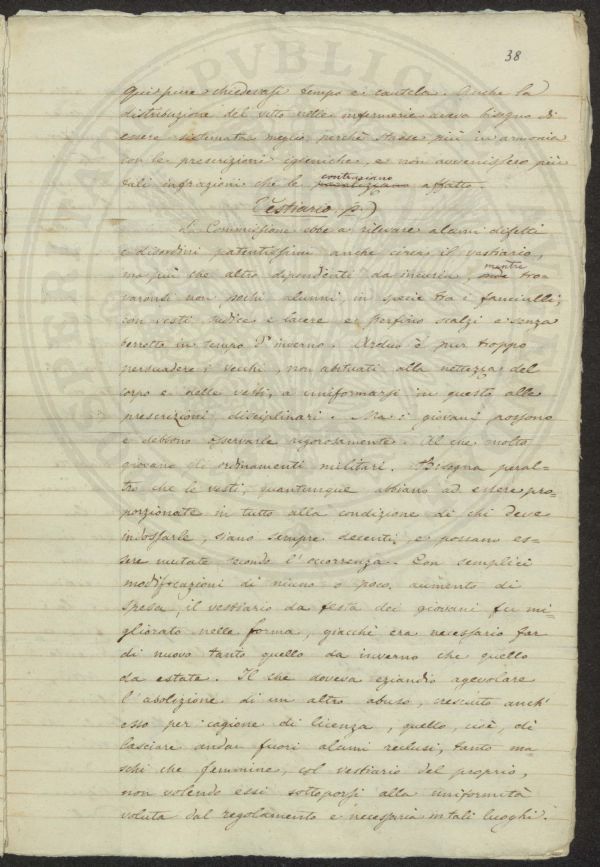 38
quispure chiedevasi tempo e cautela. Anche la
distribuzione del vitto nelle infermerie aveva bisogno di
essere sistemata meglio, perchè stesse più in armonia
con le prescrizioni igieniche, e non avvenissero più
tali infrazioni che le contrariano affatto.
Vestiario. p.)
La Commissione ebbe a rilevare alcuni difetti
e disordini patentissimi anche circa il vestiario,
ma più che altro dipendenti da incuria, mentre tro-
varonsi non pochi alunni, in specie tra i fanciulli,
con vesti sudice e lacere e perfino scalzi e senza
berretto in tempo d'inverno. Arduo è pur troppo
persuadere i vecchi, non abituati alla nettezza del
corpo e delle vesti, a uniformarsi in questo alle
prescrizioni disciplinari. Ma i giovani possono
e debbono osservarle rigorosamente. Al che molto
giovano gli ordinamenti militari. Bisogna peral-
tro che le vesti, quantunque abbiano ad essere pro-
porzionate in tutto alla condizione di chi deve
indossarle, siano sempre decenti, e possano es-
sere mutate secondo l'occorrenza. Con semplici
modificazioni di niuno o poco aumento di
spesa, il vestiario da festa dei giovani fu mi-
gliorato nella forma, giacchè era necessario far
di nuovo tanto quello da inverno che quello
da estate. Il che doveva eziandio agevolare
l'abolizione di un altro abuso, cresciuto anch'
esso per cagione di licenza, quello, cioè, di
lasciare andar fuori alcuni reclusi, tanto ma-
schi che femmine, col vestiario del proprio,
non volendo essi sottoporsi alla uniformità
voluta dal regolamento e necessaria in tali luoghi.